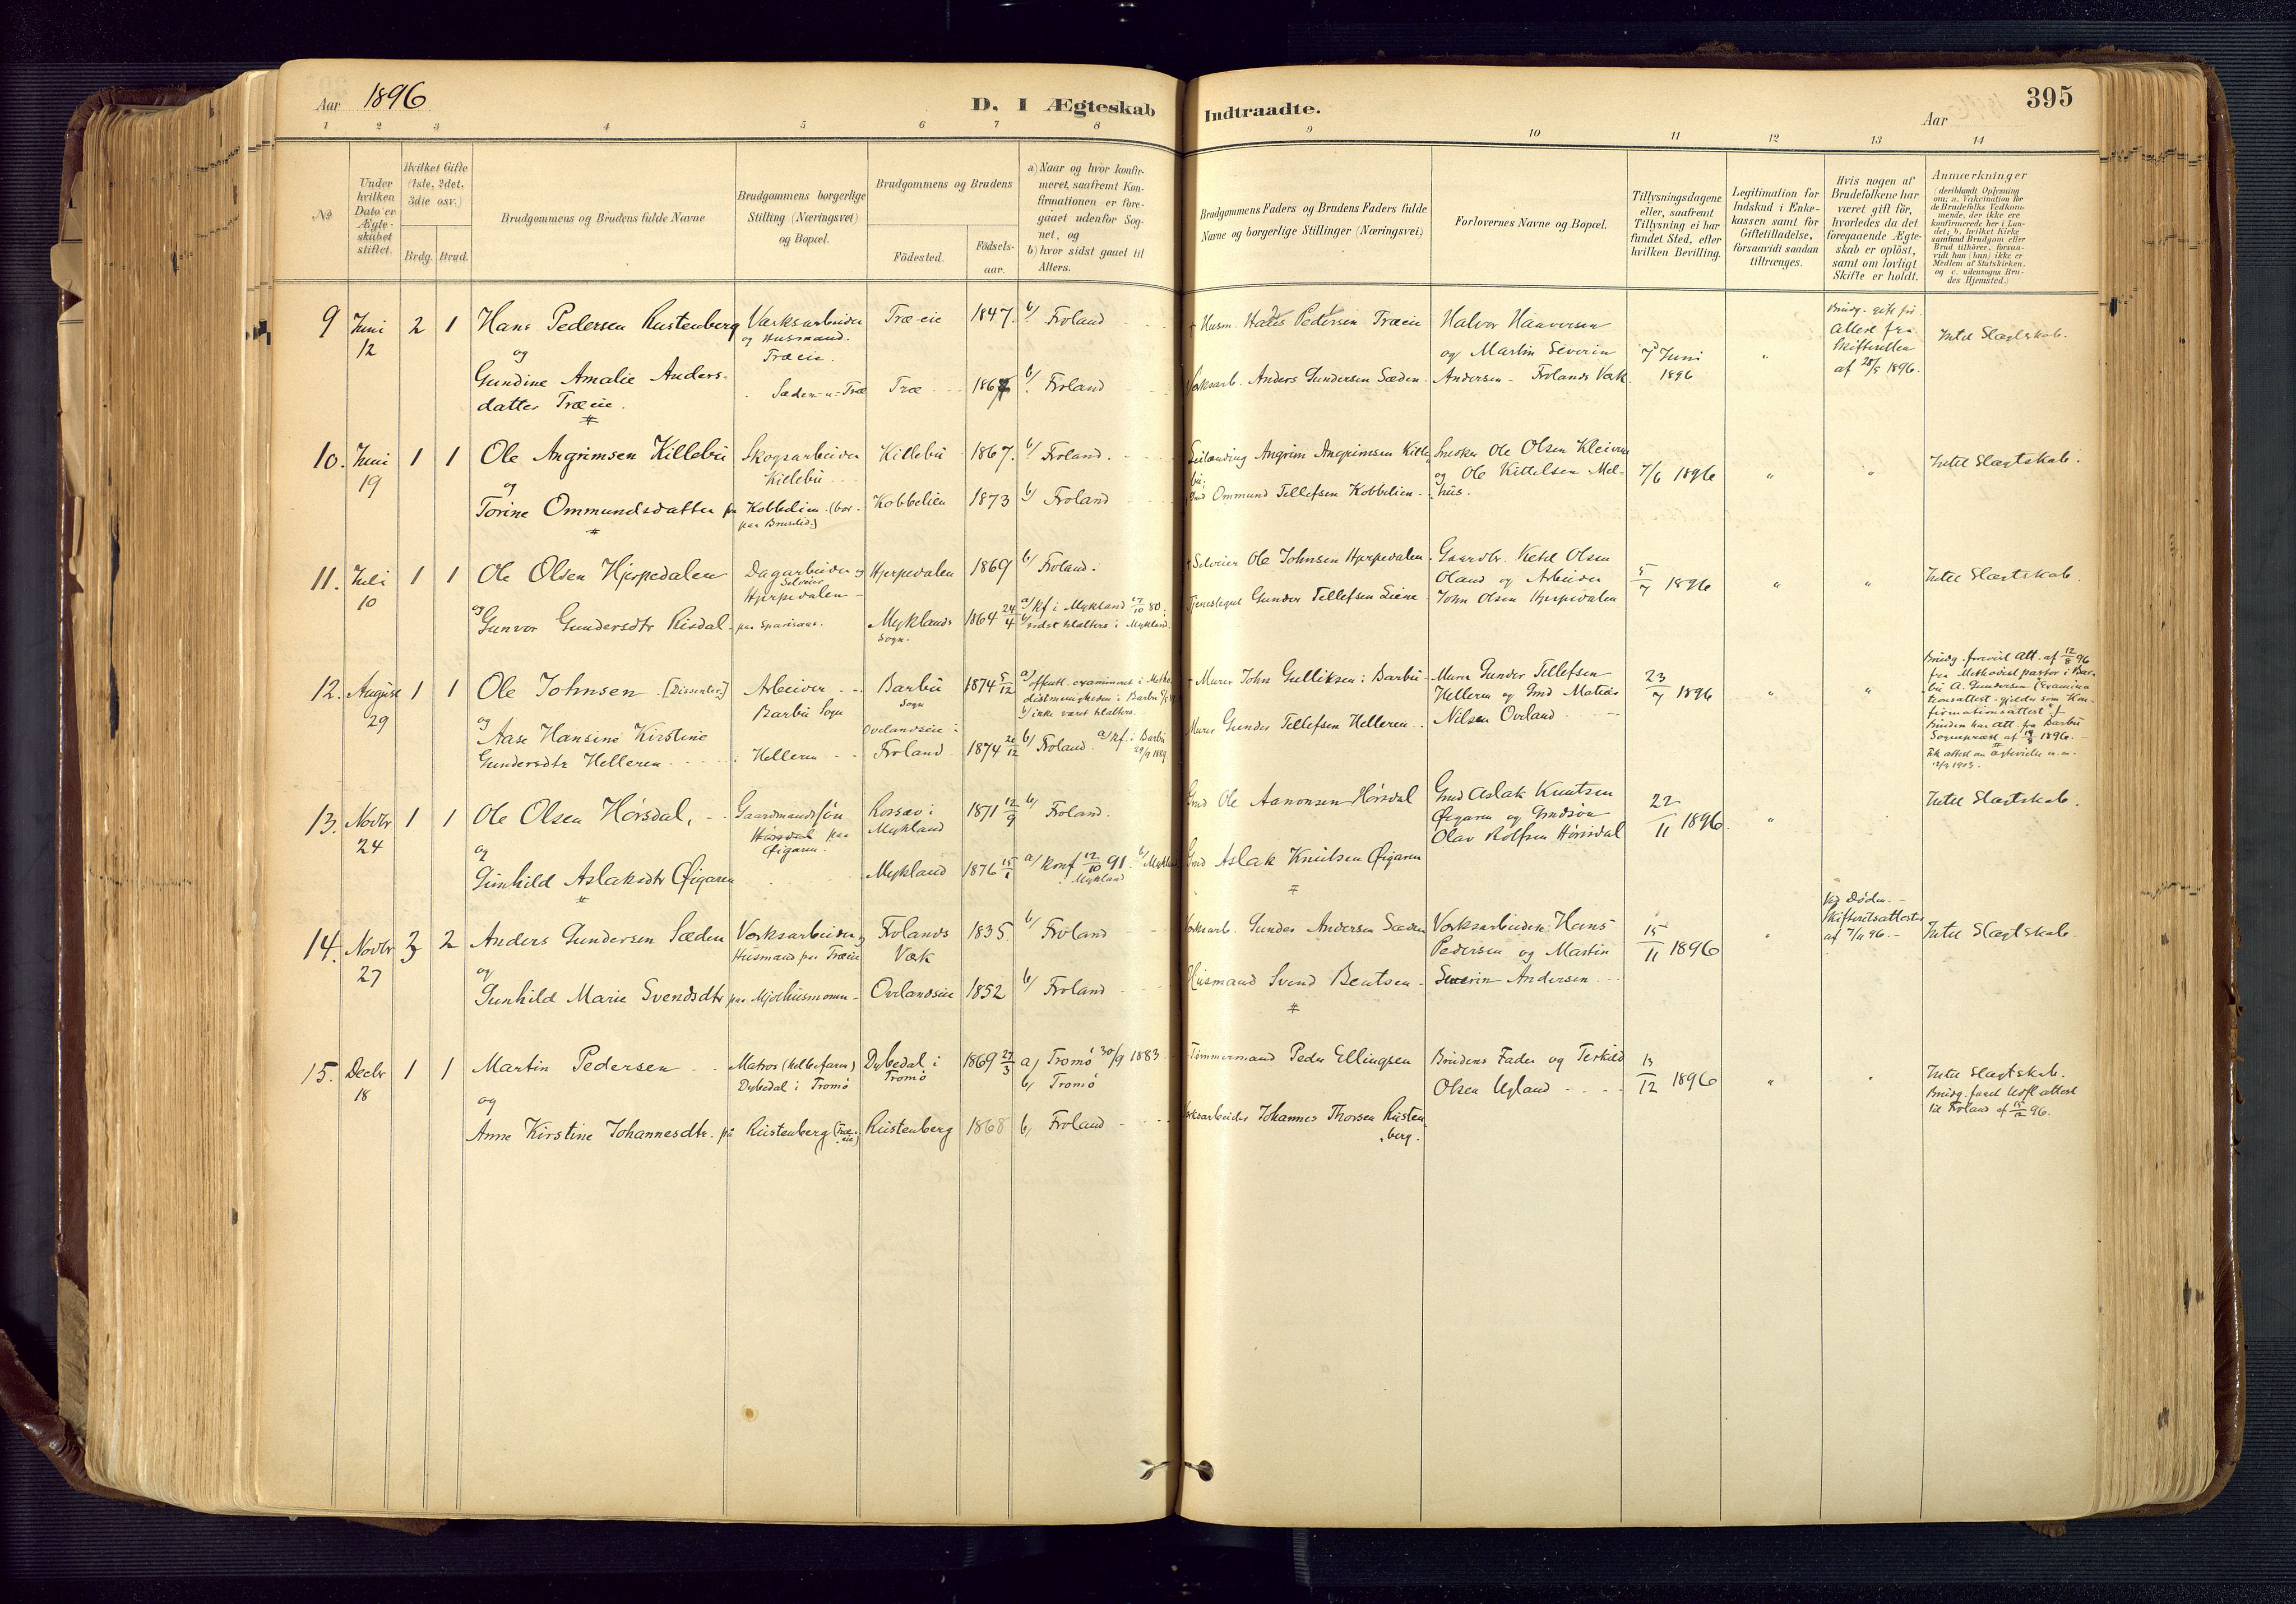 Aar 1896
D. I Ægteskab
Indtraadte.
Aar
395
1 2 3 4 5 6 7 8 9 10 11 12 13 14
No
Under hvilken Dato er Ægteskabet stiftet.
Hvilket Gifte (1ste, 2det, 3die osv.)
Brdg. Brud.
Brudgommens og Brudens fulde Navne
Brudgommens borgerlige Stilling (Næringsvei) og Bopæl.
Brudgommens og Brudens
Födested.
Födselsaar.
a) Naar og hvor konfirmeret, saafremt Konfirmationen er foregaaet udenfor Sognet, og
b) hvor sidst gaaet til Alters.
Brudgommens Faders og Brudens Faders fulde Navne og borgerlige Stillinger (Næringsvei)
Forlovernes Navne og Bopæl.
Tillysningsdagene eller, saafremt Tillysning ei har fundet Sted, efter hvilken Bevilling.
Legitimation for Indskud i Enkekassen samt for Giftetilladelse, forsaavidt saadan tiltrænges.
Hvis nogen af Brudefolkene har været gift för, hvorledes da det foregaaende Ægteskab er oplöst, samt om lovligt Skifte er holdt.
Anmærkninger
(deriblandt Oplysning om: a. Vakcination for de Brudefolks Vedkommende, der ikke ere konfirmerede her i Landet; b. hvilket Kirkesamfund Brudgom eller Brud tilhörer, forsaavidt han (hun) ikke er Medlem af Statskirken. og c. udensogns Brudes Hjemsted.)
9 Juni 12 2 1 Hans Pedersen Rustenberg
og
Gundine Amalie Andersdatter Træeie.
Værksarbeider og Husmand. Træeie.
Sæden u. Træ
Træeie 1847. b/ Froland
Træ 1867 b/ Froland
+ Husm. Pedersen Træeie
Anders Gundersen Sæden
Halvor Haaversen
og Martin Severin
Andersen - Frolands Værk
7 Juni 1896
"
Brudg. gift før.
Attest fra
Skifteretten
af 28/5 1896.
Intet Slægtskab.
10. Juni 19 1 1 Ole Angrimsen Killebu
og
Torine Ommundsdatter
Skogsarbeider
Killebu
paa Kobbelien (bor
Killebu 1867. b/ Froland.
Kobbelien 1873 b/ Froland
Leilænding Angrim Angrimsen Killebu.
Gmd Ommund Tellefsen Kobbelien
Snedker Ole Olsen Kleiven
og Ole Kittelsen Melhus.
7/6 1896
" "
Intet Slægtskab.
11. Juli 10 1 1 Ole Olsen Hjerpedalen
og
Gunvor Gundersdtr Risdal
Dagarbeider og
Selveier
Hjerpedalen
Hjerpedalen 1869 b/ Froland.
Myklands Sogn. 1864 24/4 a/ Kf i Mykland 17/10 80.
b/ sidst tilalters i Mykland.
+ Selveier Ole Johnsen Hjerpedalen
Gunder Tellefsen Liene
Gaardbr. Ketil Olsen
Oland og Arbeider
John Olsen Hjerpedalen
5/7 1896
" "
Intet Slægtskab.
12. August 29 1 1 Ole Johnsen [Dissenter]
og
Aase Hansine Kirstine
Gundersdtr Helleren
Arbeider
Barbu Sogn
Helleren
Barbu Sogn 1874 5/12
Ovelandseie i
Froland 1874 26/12 b/ Froland. a/ Kf. i Barbu 29/9 1889.
b/ ikke været tilalters.
+ Murer John Gulliksen i Barbu
Murer Gunder Tellefsen Helleren
Murer Gunder Tellefsen
Helleren og Gmd Matias
Nilsen Ovland
23/7 1896
" "
Brudg. forevist Att. af 12/8 96
fra Methodistpastor i Barbu
A. Gundersen (Examinationsattest
gjelder som Konfirmationsattest)
Bruden har Att. fra Barbu
Sogneprest af 14/8 1896.
13. Novbr 24 1 1 Ole Olsen Hørsdal,
og
Gunhild Aslaksdtr Øigaren
Gaardmandssøn
Hørsdal paa
Øigaren.
Rossav i
Mykland 1871 12/9 b/ Froland.
Mykland 1876 15/1 a/ konf 12/10 91. b/ Mykland
Mykland
Gmd Ole Aanonsen Hørsdal
Gmd Aslak Knutsen Øigaren
Gmd Aslak Knutsen
Øigaren og Gmdsøn
Olav Rolfsen Hørsdal
22/11 1896.
"
Intet Slægtskab.
14. Novbr 27 3 2 Anders Gundersen Sæden
og
Gunhild Marie Svendsdtr
Værksarbeider og
Husmand paa Træeie
paa Mjølhusmoen
Frolands
Værk 1835. b/ Froland
Ovelandseie 1852 b/ Froland
Værksarb. Gunder Andersen Sæden
Husmand Svend Bentsen
Værksarbeider Hans
Pedersen og Martin
Severin Andersen
15/11 1896
"
Ved Døden.
Skifteretsattester
af 7/11 96.
Intet Slægtskab.
15. Decbr 18 1 1 Martin Pedersen
og
Anne Kirstine Johannesdtr. på
Matros (helbefaren)
Dybedal i Tromø
Rustenberg (Træeie)
Dybedal i
Tromø 1869 27/3 a) Tromø 30/9 1883
b) Tromø
Rustenberg 1868 b) Froland
Tømmermand Peder Ellingsen
Værksarbeider Johannes Thorsen Rustenberg.
Brudens Fader og Terkild
Olsen Ugland
13/12 1896
"
Intet Slægtskab.